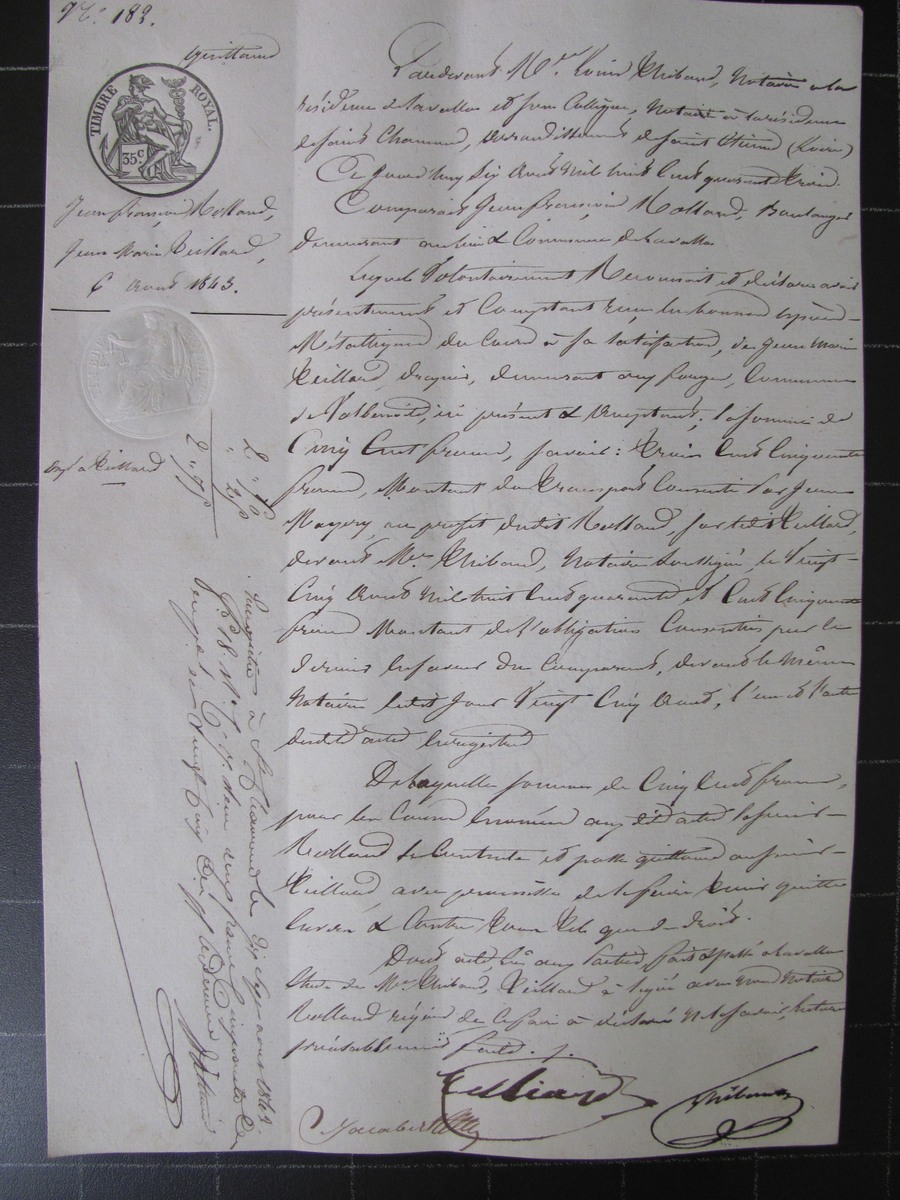 N.° 182.
Quittance
TIMBRE ROYAL.
35 c.
Jean françois Rolland,
Jean Marie Teillard,
6 Aout 1843.
Exp. à Teillard
2. 50
25
2. 75
Enregistré à St Chamond le dix sept aout 1843.
f.° 18 deux francs cinquante c.
vingt cinq
Pardevant M.e Louis Thibaud, Notaire à la
résidence de Lavalla et son Collègue, Notaire à la résidence
de Saint Chamond, arrondissement de Saint Etienne (Loire)
Ce jourd'huy Six Aout Mil huit cent quarante trois.
Comparait Jean françois Rolland, Boulanger
demeurant au lieu & Commune de Lavalla.
Lequel Volontairement Reconnait et déclare avoir
présentement et Comptant reçu en bonnes espèces
Métalliques du Cours à sa satisfaction, de Jean Marie
Teillard, demeurant au Commune
de Valbenoite, ici présent & acceptant, la somme de
Cinq Cent francs, savoir: trois Cent Cinquante
francs, Montant du transport Consenti par Jean
au profit dudit Rolland, sur ledit Teillard,
devant M.e Thibaud, Notaire soussigné, le Vingt
Cinq Aout Mil huit Cent quarante et Cent Cinquante
francs Montant de l'obligation Consentie par le
dernier en faveur du Comparant, devant le même
Notaire ledit jour Vingt Cinq Aout, l'un & l'autre
desdits actes Enregistrés
De laquelle somme de Cinq Cent francs,
pour les Causes énoncées aux dits actes le sieur
Rolland se Contente et passe quittance au sieur
Teillard, avec promesse de le faire tenir quitte
Envers & Contre tous tels que de droit.
Dont acte, lu aux Parties, fait & passé à Lavalla
Etude de M.e Thibaud, Teillard a signé avec nous Notaires
Rolland requis de le faire a déclaré ne le savoir, lecture
préalablement faite.
Teilliard
Thibaud